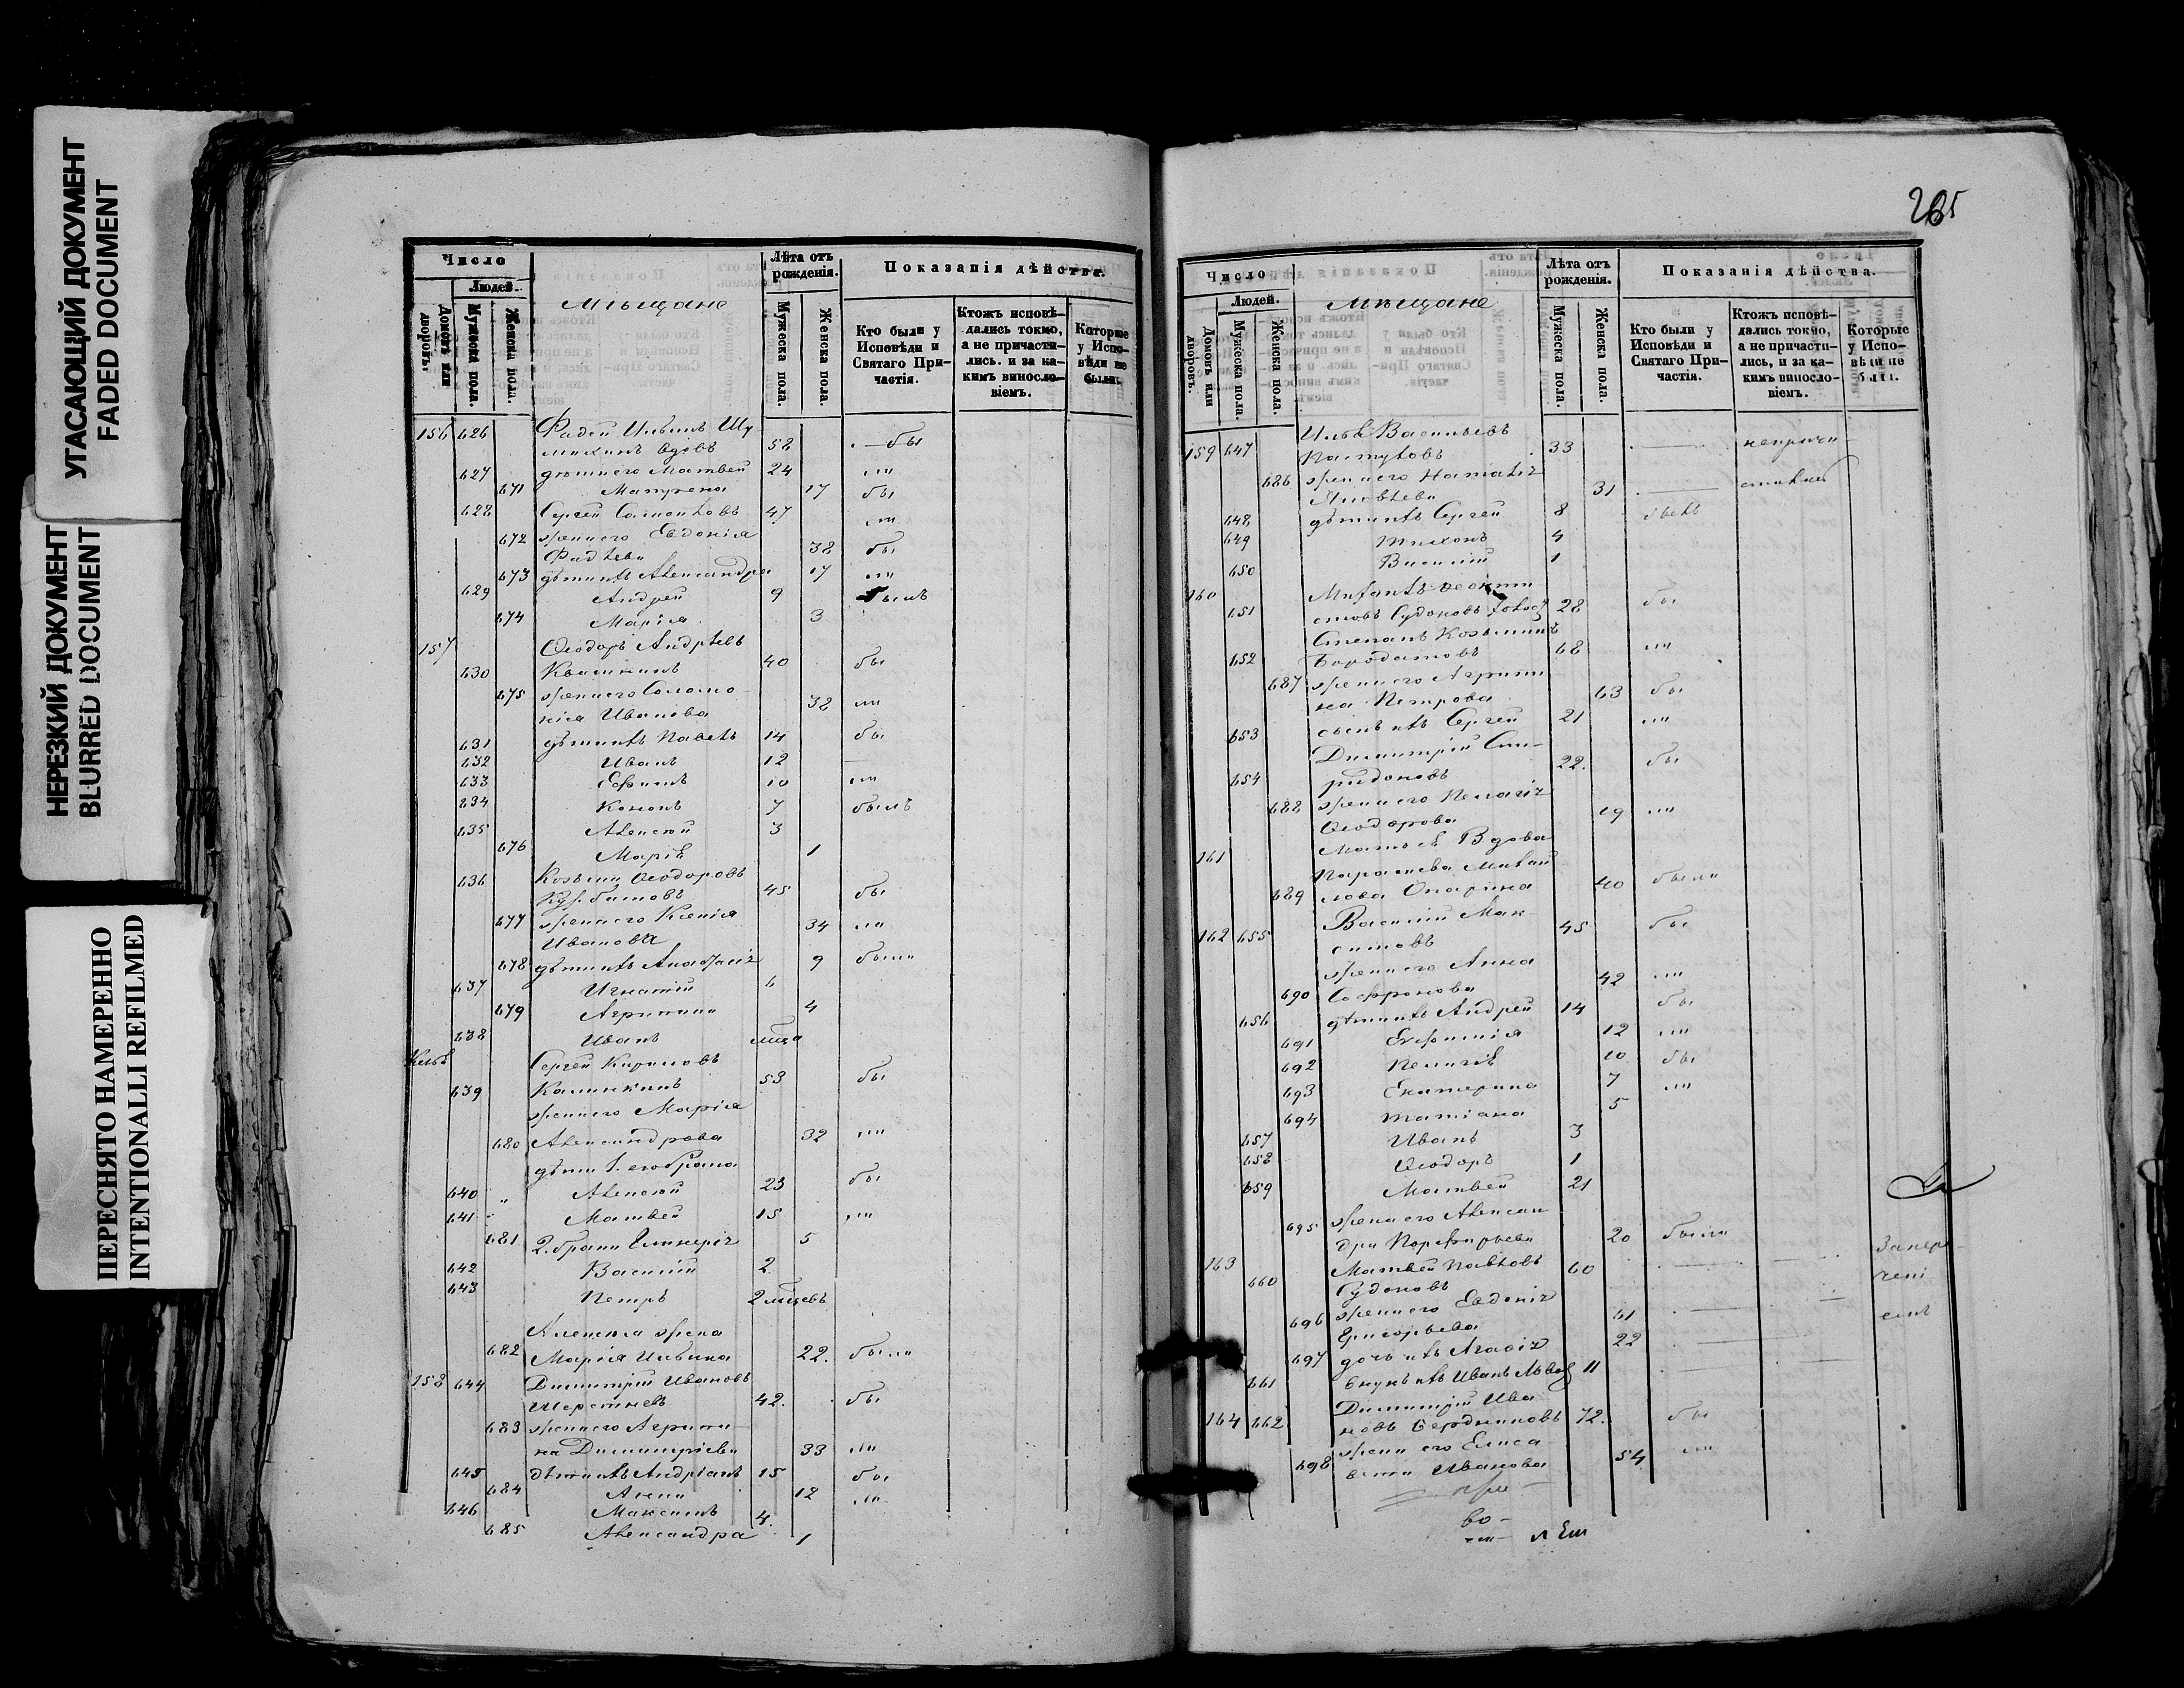 УГАСАЮЩИЙ ДОКУМЕНТ
FADED DOCUMENT
НЕРЕЗКИЙ ДОКУМЕНТ
BLURRED DOCUMENT
ПЕРЕСНЯТО НАМЕРЕННО
INTENTIONALLI REFILMED
Число
Людей.
Домовъ или дворовъ.
Мужеска пола.
Женска пола.
Мѣщане
Лѣта отъ рожденія.
Мужеска пола.
Женска пола.
Показанія дѣйства.
Кто были у Исповѣди и Святаго Причастія.
Ктожъ исповѣдались токмо, а не причастились. и за какимъ винословіемъ.
Которые у Исповѣди не были.
156 626 Фадей Ильинъ Шу
михинъ вдовъ 58 бы
627 дѣти его Матвей 24 ли
671 Матрена 17 бы
628 Сергей 47 ли
672 жена его Евдокія
Фадѣева 38 бы
673 дѣти ихъ Александра 17 ли
629 Андрей 9 были
674 Марія 3
157 Ѳеодоръ Андрѣевъ
630 Квашнинъ 40 бы
675 жена его Соломо
нія Иванова 38 ли
631 дѣти ихъ Павелъ 14 бы
632 Иванъ 12
633 Ефимъ 10 ли
634 Кононъ 7 былъ
635 Алексѣй 3
676 Марія 1
636 Козьма Ѳеодоровъ
45 бы
677 жена его Ксенія
Иванова 34 ли
678 дѣти ихъ Анастасія 9 были
637 Игнатій 6
679 Агрипина 4
638 Иванъ
Сергей Кириловъ
639 Калинкинъ 53 бы
жена его Марія
680 Александрова 32 ли
дѣти 1. его брака
640 Алексѣй 23 бы
641 Матвей 15 ли
681 2. брака Гликерія 5
642 Василій 2
643 Петръ 2
Алексѣя жена
682 Марія Ильина 22. были
158 644 Димитрій Ивановъ
Шерстневъ 42. бы
683 жена его Агрипи
на Димитріева 33 ли
645 дѣти ихъ Андріанъ 15 бы
684 Анна 12 ли
646 Максимъ 4.
685 Александра 1
265
Число
Людей.
Домовъ или дворовъ.
Мужеска пола.
Женска пола.
Мѣщане
Лѣта отъ рожденія.
Мужеска пола.
Женска пола.
Показанія дѣйства.
Кто были у Исповѣди и Святаго Причастія.
Ктожъ исповѣдались токмо, а не причастились, и за какимъ винословіемъ.
Которые у Исповѣди не были.
Илья Васильевъ
159 647 Пастуховъ 33
686 жена его Наталія
Яковлева 31
648 дѣти ихъ Сергей 8
649 Тихонъ 4
650 Василій 1
160
651 28 бы
Степанъ Козьминъ
652 Бородатовъ 68 ли
687 жена его Агрипи
на Петрова 63 бы
653 сынъ ихъ Сергей 21 ли
Димитрій Спи-
654 ридоновъ 22. бы
688 жена его Пелагія
Ѳеодорова 19 ли
161 Вдова
Параскева Михай
689 лова Опарина 40 были
Василій Мак-
162 655 симовъ 45 бы
жена его Анна
690 Софронова 42 ли
656 дѣти ихъ Андрей 14 бы
691 Евфимія 12 ли
692 Пелагія 10 бы
693 Екатерина 7 ли
694 Татіана 5
657 Иванъ 3
658 Ѳеодоръ 1
659 Матвей 21
695 жена его Алексан
дра Порфирьева 20 были
163 Матвей Павловъ
660 Гудоновъ 60
696 жена его Евдокія
Григорьева 61
697 дочь ихъ Агафія 22
661 внукъ ихъ Иванъ Львовъ 11
Димитрій Ива
164 662 новъ Бердниковъ 72. бы
698 жена его Елиса
вета Иванова 54 ли